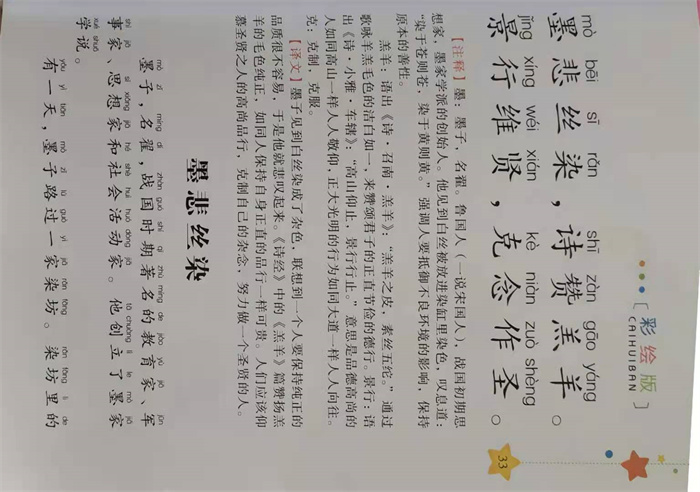 [彩绘版]
CAIHUIBAN
mò bēi sī rǎn shī zàn gāo yáng
墨悲丝染，诗赞羔羊。
jǐng xíng wéi xián kè niàn zuò shèng
景行维贤，克念作圣。
【注释】墨：墨子，名翟。鲁国人（一说宋国人），战国初期思
想家，墨家学派的创始人。他见到白丝被放进染缸里染色，叹息道：
“染于苍则苍，染于黄则黄。”强调人要抵御不良环境的影响，保持
原本的善性。
羔羊：语出《诗·召南·羔羊》：“羔羊之皮，素丝五紽。”通过
歌咏羊羔毛色的洁白如一，来赞颂君子的正直节俭的德行。景行：语
出《诗·小雅·车辖》：“高山仰止，景行行止。”意思是品德高尚的
人如同高山一样人人敬仰，正大光明的行为如同大道一样人人向往。
克：克制，克服。
【译文】墨子见到白丝染成了杂色，联想到一个人要保持纯正的
品质很不容易，于是他就悲叹起来。《诗经》中的《羔羊》篇赞扬羔
羊的毛色纯正，如同人保持自身正直的品行一样可贵。人们应该仰
慕圣贤之人的高尚品行，克制自己的杂念，努力做一个圣贤的人。
墨悲丝染
mò zǐ míng dí zhàn guó shí qī zhù míng de jiào yù jiā jūn
墨子，名翟，战国时期著名的教育家、军
shì jiā sī xiǎng jiā hé shè huì huó dòng jiā tā chuàng lì le mò jiā
事家、思想家和社会活动家。他创立了墨家
xué shuō
学说。
yǒu yì tiān mò zǐ lù guò yì jiā rǎn fáng rǎn fáng lǐ de
有一天，墨子路过一家染坊。染坊里的
33